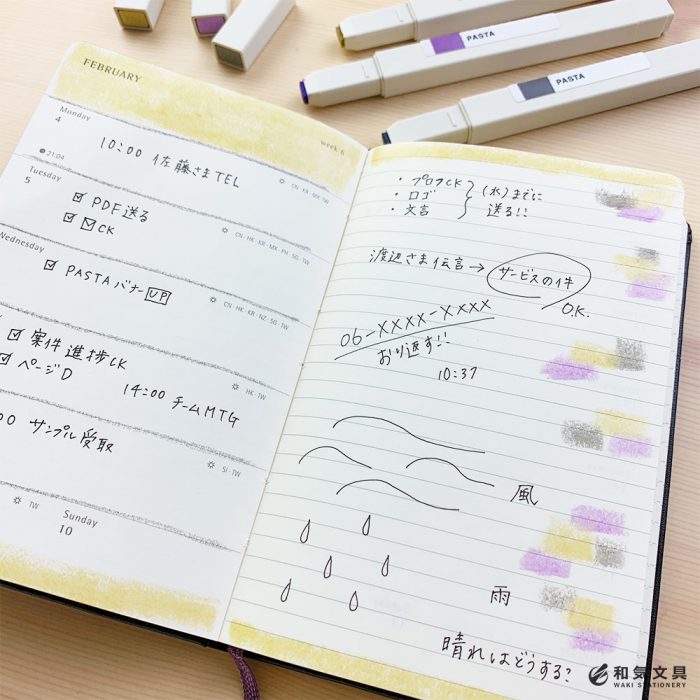 PASTA
PASTA
FEBRUARY
week 6
Monday
4
10:00 佐藤さまTEL
21:04
CN・KR・MX・TW
Tuesday
5
PDF送る
CK
CN・HK・KR・MX・PH・SG・TW
Wednesday
PASTAバナーUP
CN・HK・KR・NZ・SG・TW
案件進捗CK
ページD
14:00 チームMTG
HK・TW
00 サンプル受取
SI・TW
TW
Sunday
10
・ブログCK
・ロゴ
・文言
(水)までに
送る!!
渡辺さま伝言→サービスの件
OK.
06-XXXX-XXXX
おり返す!!
10:37
風
雨
晴れはどうする?
和気文具
WAKI STATIONERY